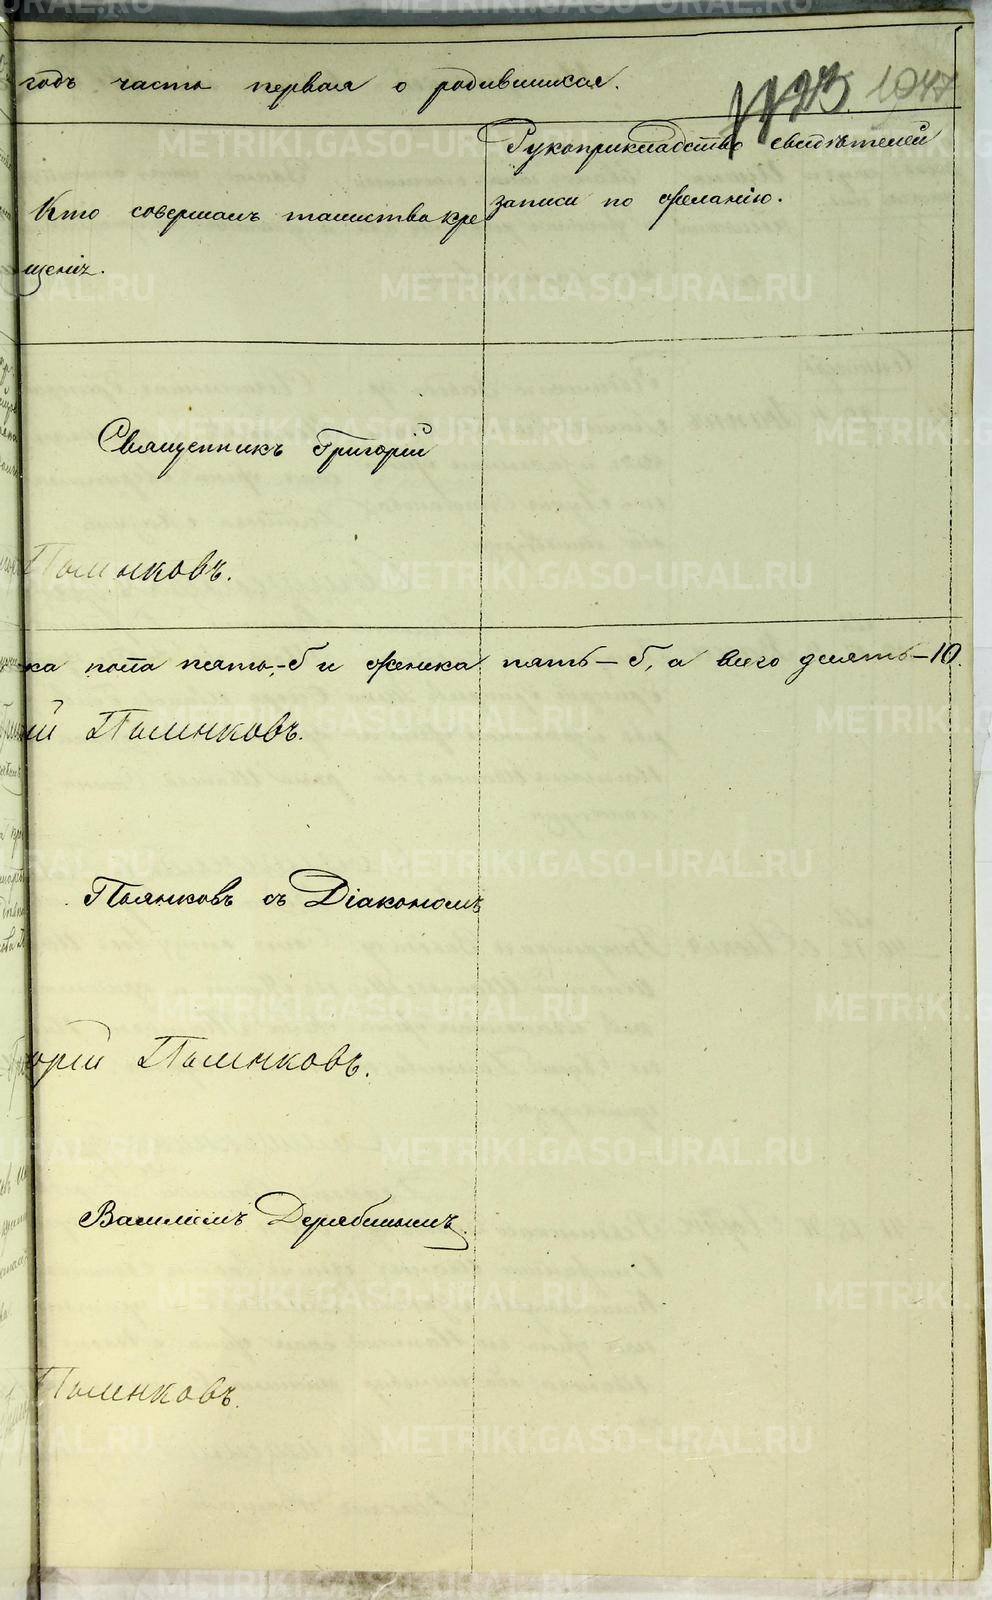 годъ часть первая о родившихся.
1047
Кто совершалъ таинство кре
щенiя.
Рукоприкладство свидѣтелей
записи по желанiю.
Священникъ Григорiй
Полянковъ.
ка пола пять-5 и женска пять-5, а всего десять-10.
Полянковъ.
Полянковъ съ Дiакономъ
горiй Полянковъ.
Василiемъ Дерябинымъ.
Полянковъ.
METRIKI.GASO-URAL.RU